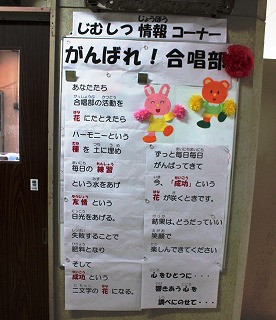 じむしつ 情報 コーナー
がんばれ！合唱部
あなたたち
合唱部の活動を
花 にたとえたら
ハーモニーという
種 を 土に埋め
毎日の 練習
という水をあげ
友情 という
日光をあげる。
失敗することで
肥料となり
そして
成功 という
二文字の 花 になる。
ずっと毎日毎日
がんばってきて
今、「成功」という
花 が咲くときです。
結果は、どうだっていい
笑顔で
楽しんできてください
心をひとつに・・・
響きあう 心 を
調べにのせて・・・